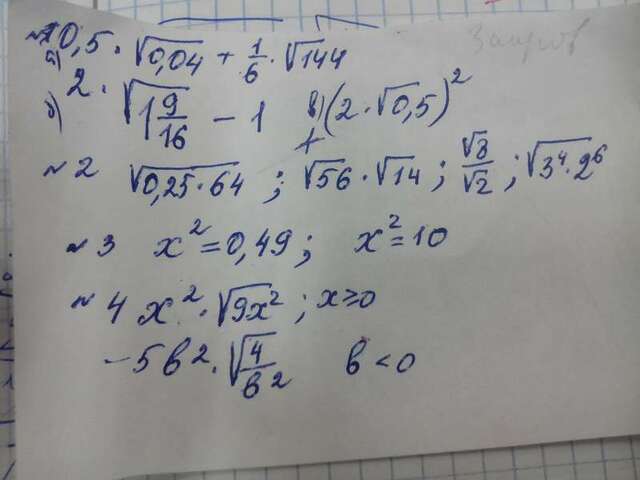 №1 0,5 · √0,04 + 1/6 · √144
а)
б) 2 · √(1 9/16) − 1 в) (2 · √0,5)²
№2 √(0,25 · 64) ; √56 · √14 ; √8/√2 ; √(3⁴ · 2⁶)
№3 x² = 0,49 ; x² = 10
№4 x² · √(9x²) ; x ≥ 0
−5b² · √(4/b²) b < 0